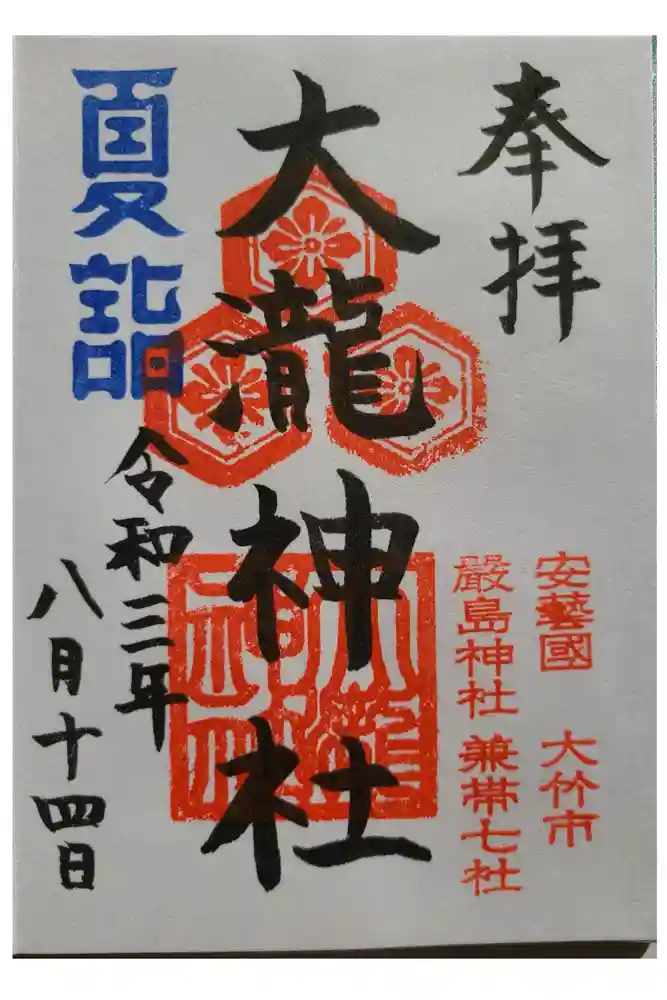 奉拝
安藝國 大竹市
嚴島神社 兼帯七社
大瀧神社
大瀧神社
夏詣
令和三年
八月十四日